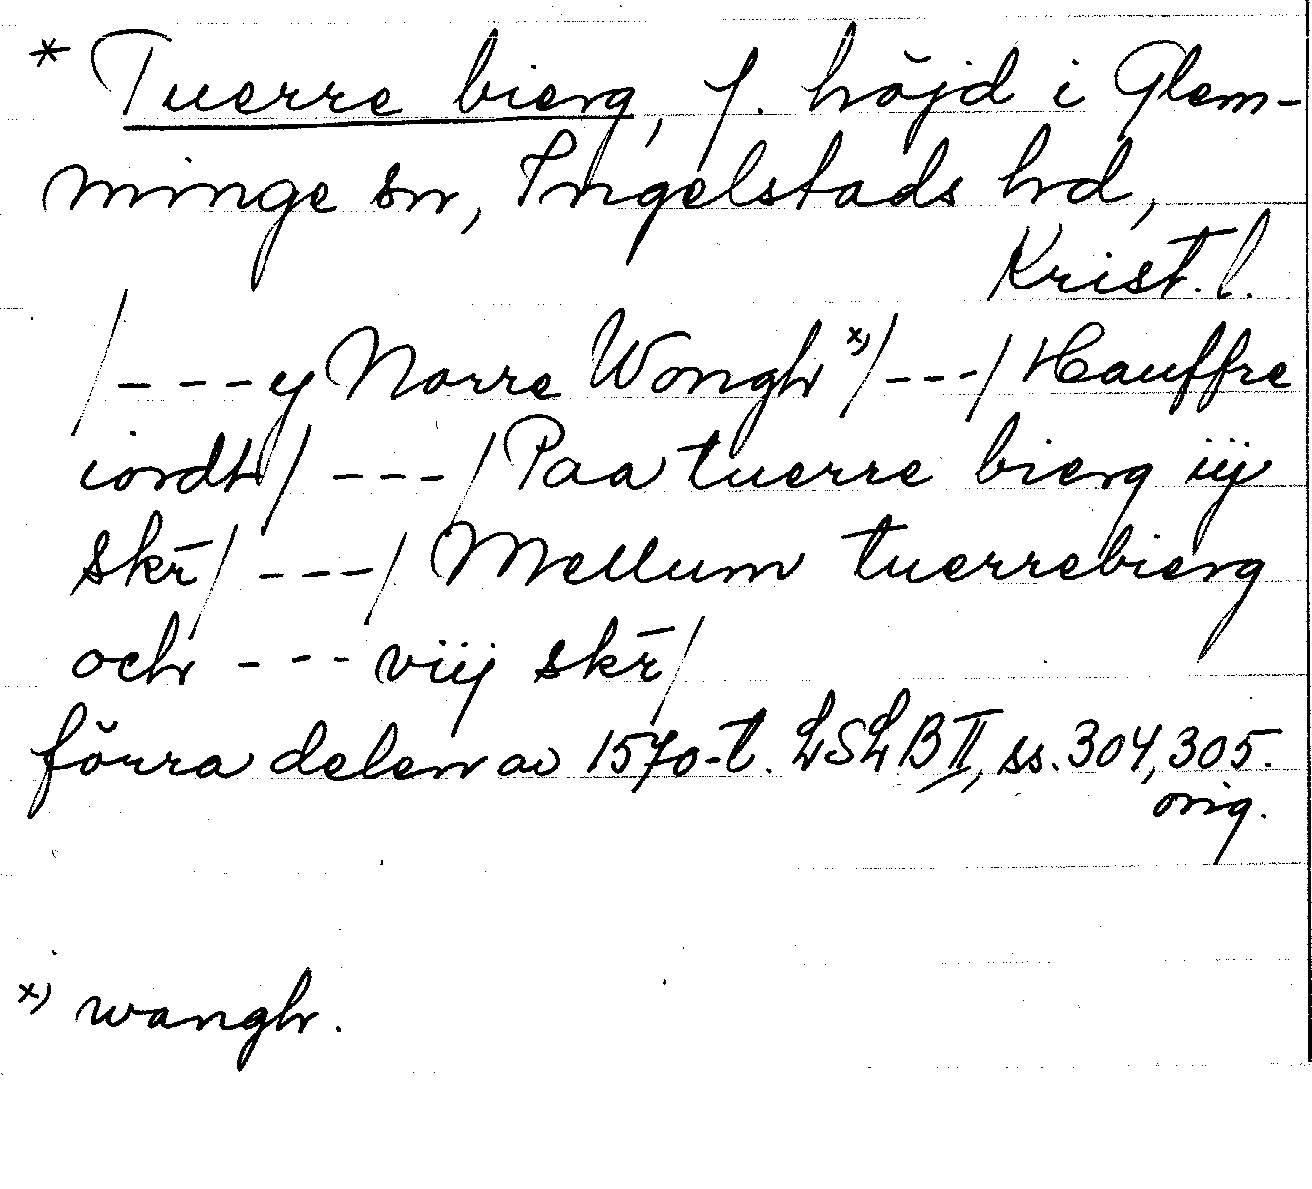 * Tuerre bierg, f. höjd i Glem-
minge sn, Ingelstads hd,
Krist. l.
/---y Norre Wongh x)/---/ Hauffre
iordt/ ---/ Paa tuerre bierg iij
skr̄/ ---/ Mellum tuerrebierg
och --- viij skr̄/
förra delen av 1570-t. LSLB II, ss. 304, 305.
orig.
x) wangh.